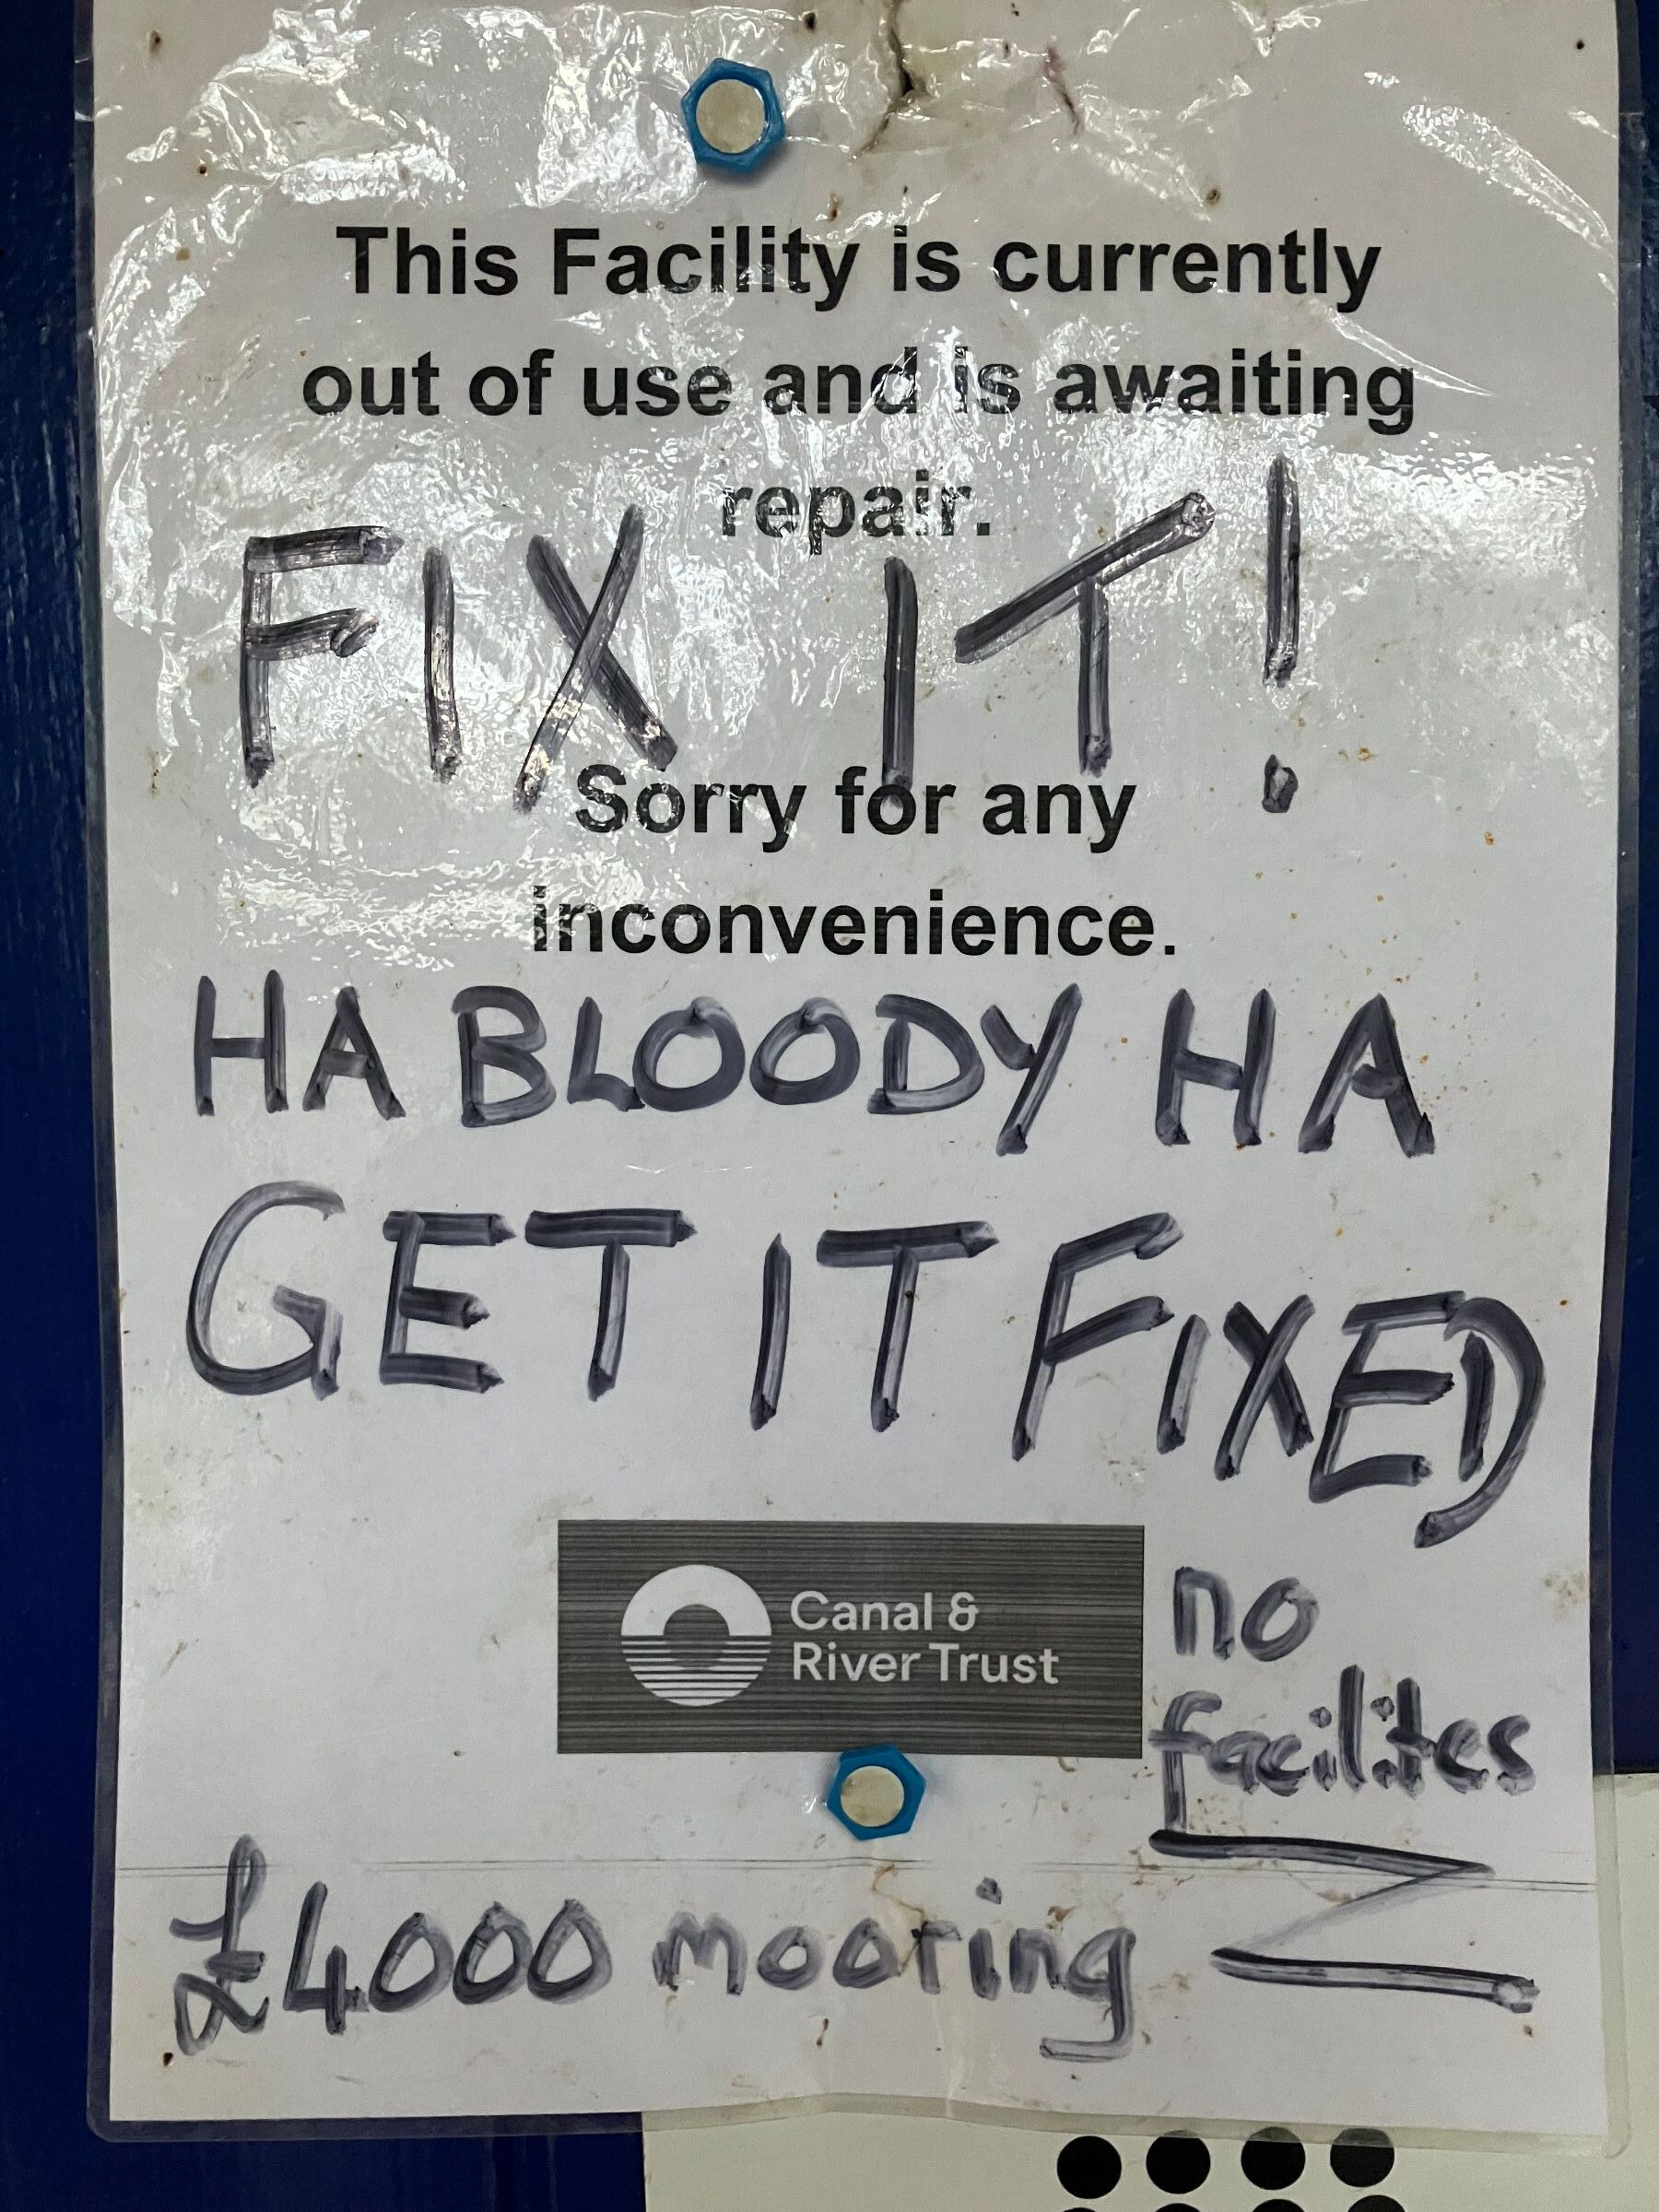 This Facility is currently
out of use and is awaiting
repair.
FIX IT!
Sorry for any
inconvenience.
HA BLOODY HA
GET IT FIXED
Canal &
River Trust
no
facilites
£4000 mooring